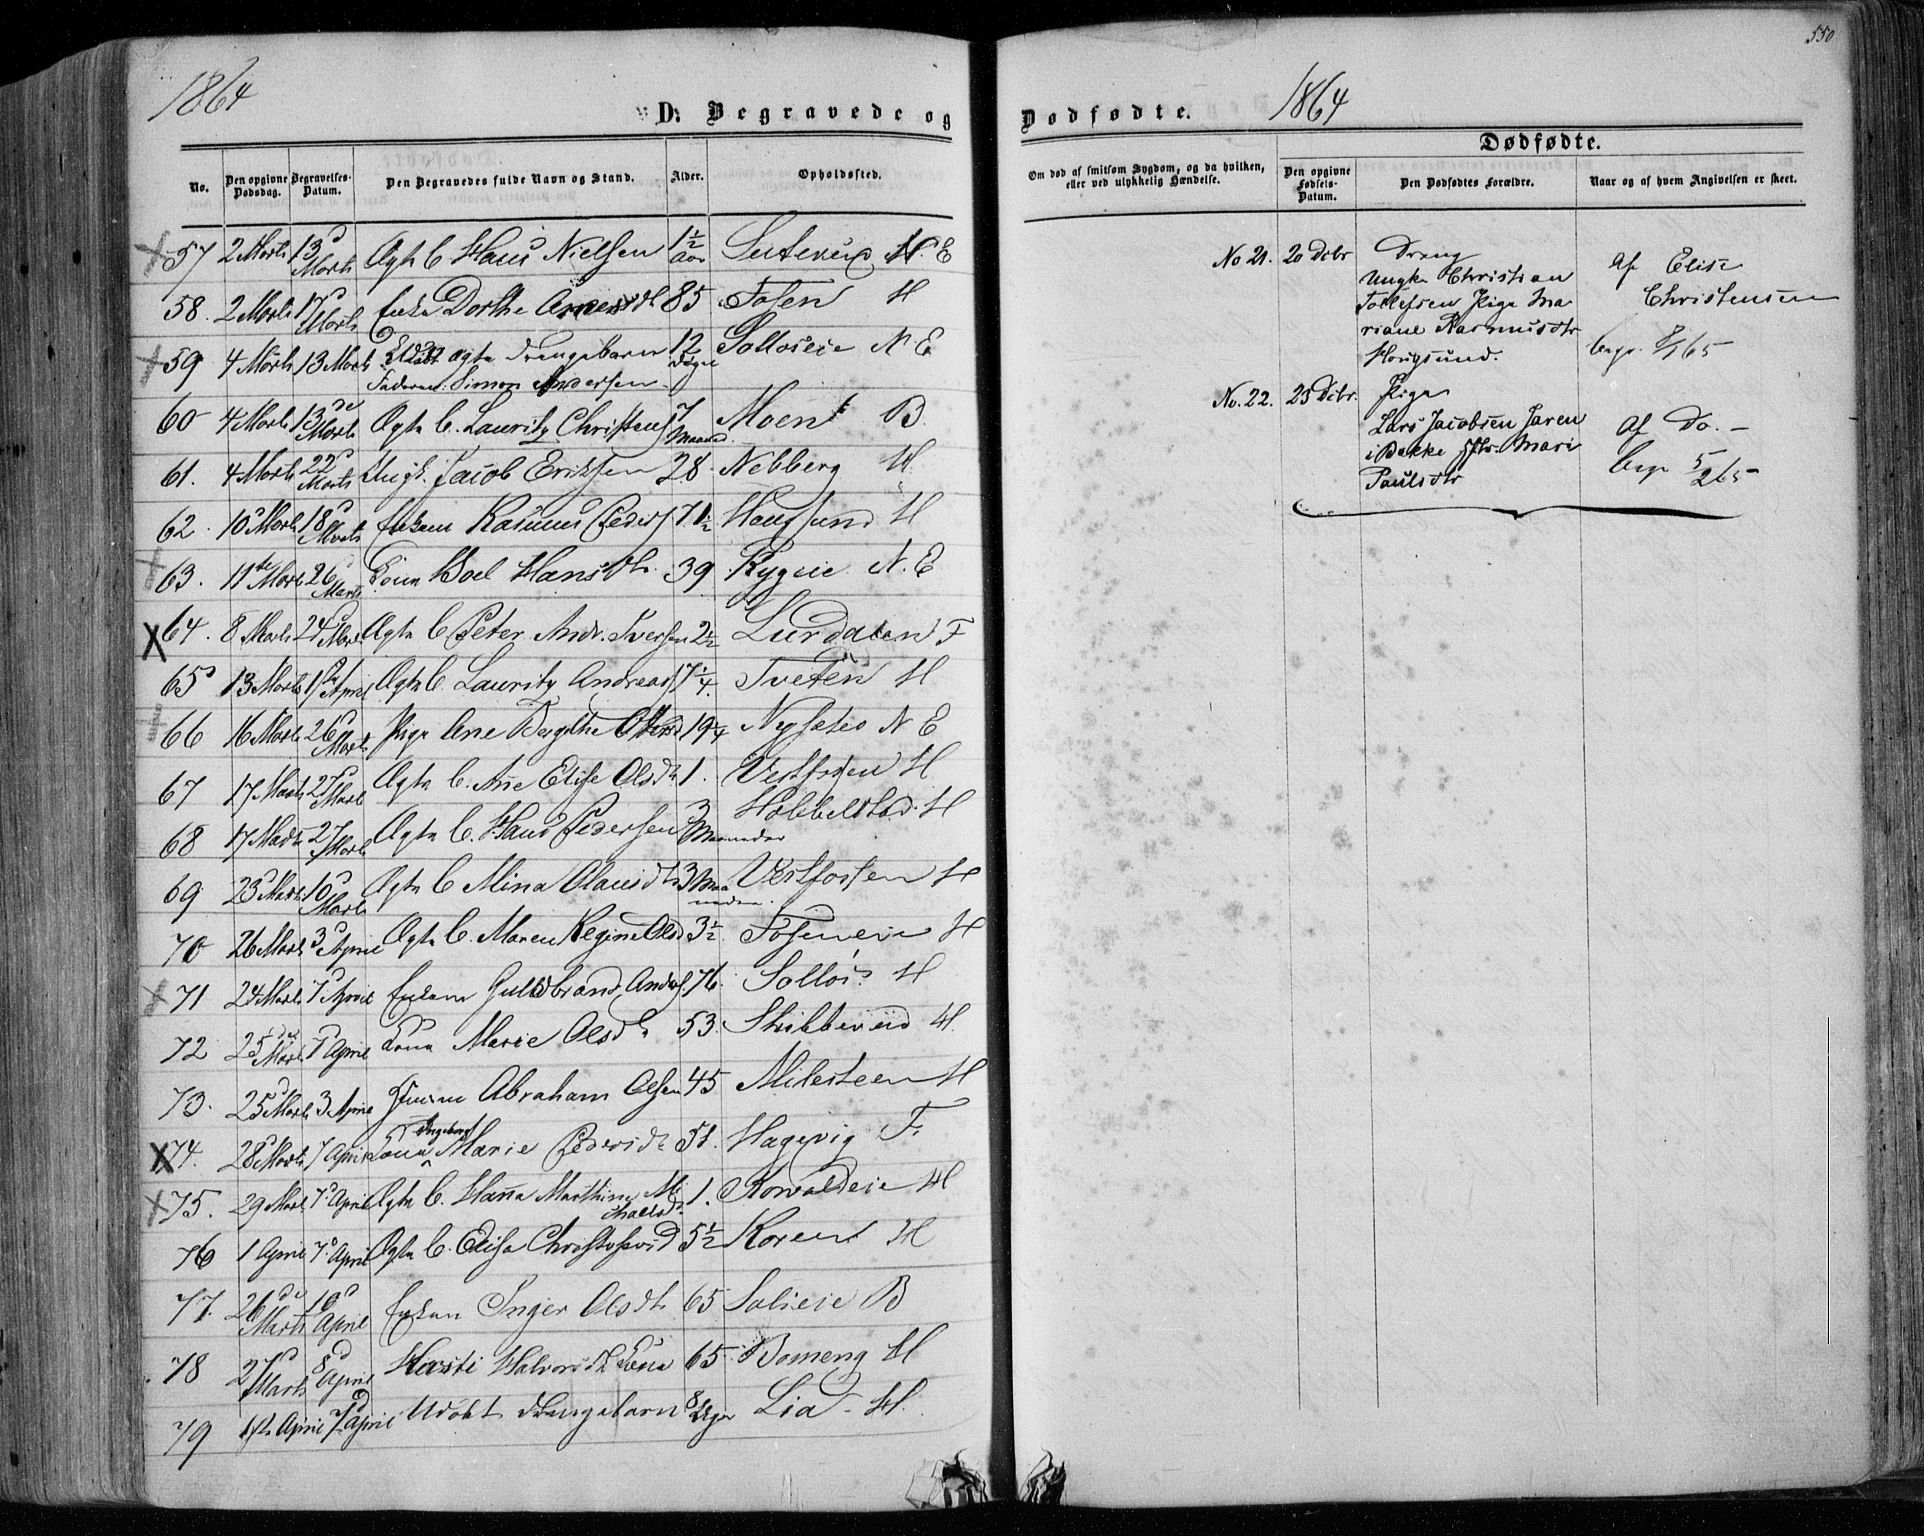 1864
D: Begravede og
No. Den opgivne Dødsdag. Begravelses-Datum. Den Begravedes fulde Navn og Stand. Alder. Opholdssted.
57 2 Marts 13 Marts Ægte B Hans Nielsen 1½ aar N. E
58. 2 Marts 17 Marts Enke Dorthe 85 Fosen H
59 4 Marts 13 Marts ægte Drengebarn 12 Døgn N E
Faderen: Simon Andersen
60 4 Marts 13de Marts Ægte B. Lauritz Christens 7 Maaned. Moen B.
61. 4 Marts 22 Marts Ungk. Jacob Eriksen 28 Nebberg H.
62. 10 Marts 18 Marts Enkem Rasmus Peders 71½ Hougsund H
63. 11te Marts 26 Marts Kone Boel Hansdtr. 39 Rygeie N. E
64. 8 Marts 24 Marts Ægte B Peter Andr. Iversen 2½ Lurdalen F
65 13 Marts 1 April Ægte B. Lauritz Andreas 7¼. Tveten H
66 16 Marts 26 Marts Pige Ane Bergithe 19¼ N E
67 17 Marts 27 Marts Ægte B. Ane Elise Olsdtr 1. Vestfossen H
68 17 Marts 27 Marts Ægte B. Hans Pedersen 3 Maaneder Hobbelstad H
69 23 Marts 10 Marts Ægte B Mina Olausdtr 3 Maaneder. Vestfossen H
70 26 Marts 3 April Ægte B. Maren Regine Olsd 3½ Foseneie H
71 24 Marts 7 April Enkem Guldbrand Anders. 76. H
72 25 Marts 7 April Kone Marie Olsdtr 53. H.
73. 25 Marts 3 April Abraham Olsen 45 Milesteen H
74. 28 Marts 7 April Kone Ingeborg Marie Pedersdtr 51. Hagevig F.
75. 29 Marts 7 April Ægte B. Hanna Marthine Mi
chaelsdtr. 1. Korvaldeie H
76 1 April 7 April Ægte B. Elise Christophersd 5½ Koren H
77. 26de Marts 10 April Enken Inger Olsdtr 65 Solieie B
78 27 Marts 8 April Halvorsdtr Kone 65 Bomeng H
79 1ste April 7 April Udøbt Drengebarn 8 Uger Lia H.
550
Dødfødte. 1864
Dødfødte.
Om død af smitsom Sygdom, og da hvilken, eller ved ulykkelig Hændelse. Den opgivne Fødsels-Datum. Den Dødfødtes Forældre. Naar og af hvem Angivelsen er skeet.
No 21. 20 Dcbr Dreng
Ungk Christian
Tollefsen Pige Ma
riane Rasmusdtr
Hougsund.
Af Elise
Christensen
begr. 8/1 65
No. 22. 25 Dcbr. Pige
Lars Jacobsen Jaren
i Bakke Hstr. Mari
Paulsdtr
Af Do. -
begr 5/2 65